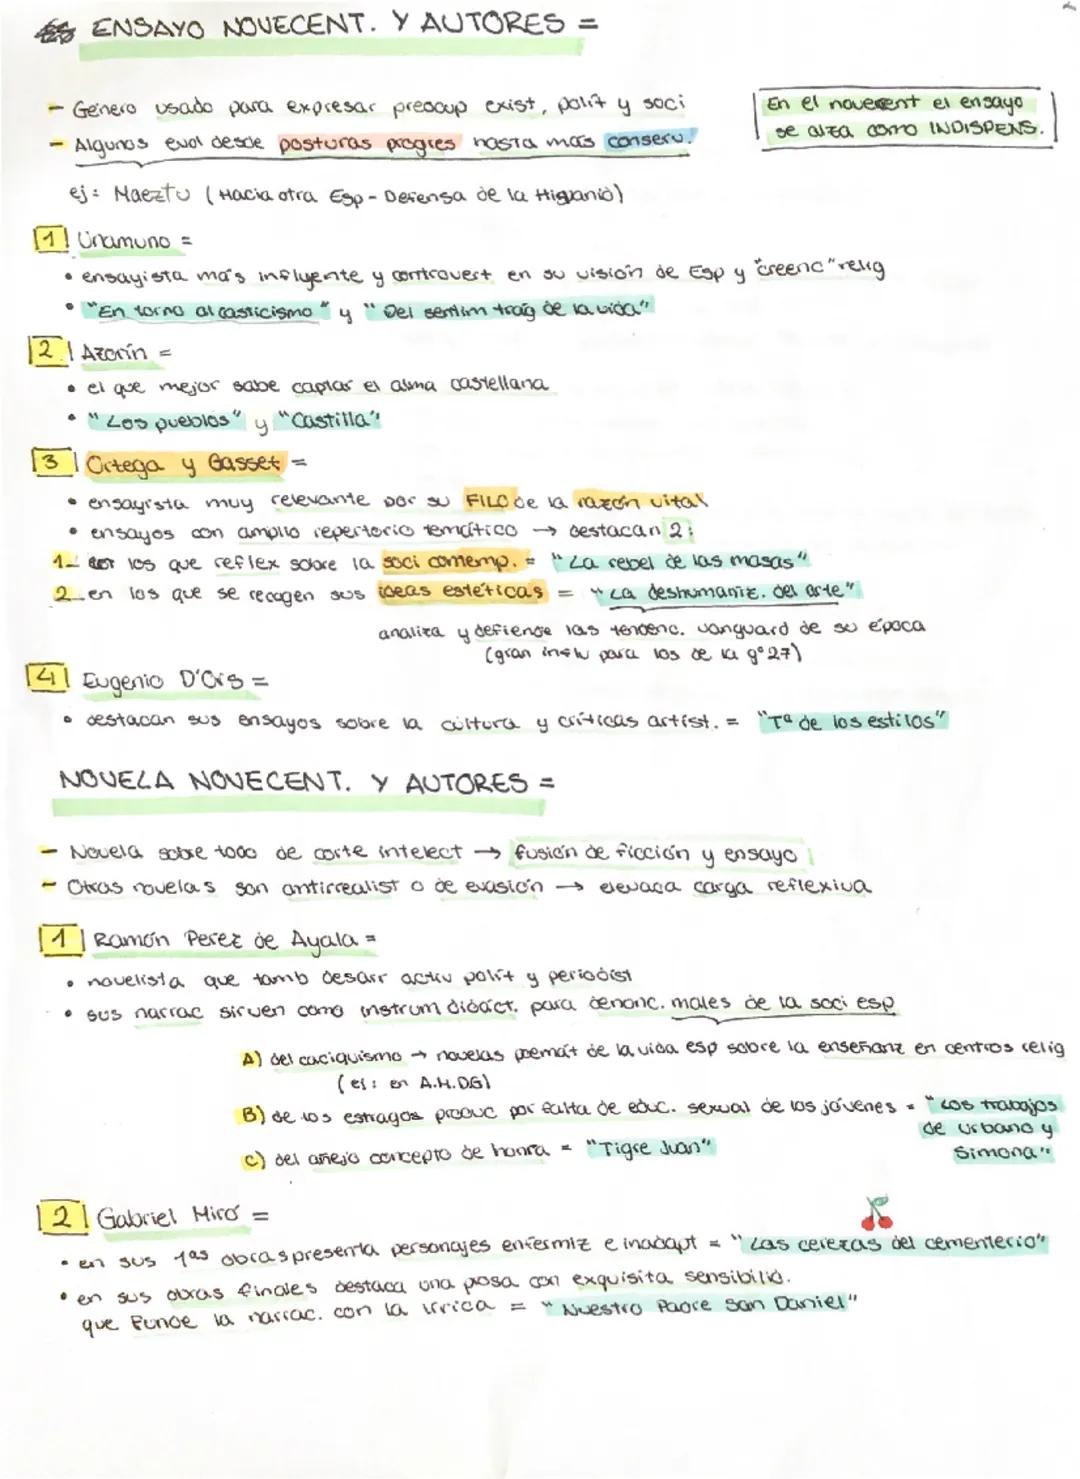 ENSAYO NOVECENT. Y AUTORES =
- Género usado para expresar preocup exist, polít y soci
- Algunos evol desde posturas progres hasta más conserv.
En el novecent el ensayo
se alza como INDISPENS.
ej: Maeztu (Hacia otra Esp - Defensa de la Hispanid)
1 Unamuno =
• ensayista más influyente y controvert en su visión de Esp y "creenc" relig
• "En torno al casticismo" y "Del sentim trág de la vida"
2 Azorín =
• el que mejor sabe captar el alma castellana
• "Los pueblos" y "Castilla"
3 Ortega y Gasset =
• ensayista muy relevante por su FILO de la razón vital
• ensayos con amplio repertorio temático → destacan 2:
1_ los que reflex sobre la soci contemp. = "La rebel de las masas"
2_en los que se recogen sus ideas estéticas = "La deshumaniz. del arte"
analiza y defiende las tendenc. vanguard de su época
(gran influ para los de la gº 27)
4 Eugenio D'Ors =
• destacan sus ensayos sobre la cultura y críticas artíst. = "Tª de los estilos"
NOVELA NOVECENT. Y AUTORES =
- Novela sobre todo de corte intelect → fusión de ficción y ensayo
- Otras novelas son antirrealist o de evasión → elevada carga reflexiva
1 Ramón Perez de Ayala =
• novelista que tamb desarr activ polít y periodíst
• sus narrac sirven como instrum didáct. para denunc. males de la soci esp
A) del caciquismo → novelas poemát de la vida esp sobre la enseñanz en centros relig
(ej: en A.M.DG)
B) de los estragos produc por falta de educ. sexual de los jóvenes = "Los trabajos
de Urbano y
Simona"
C) del añejo concepto de honra = "Tigre Juan"
2 Gabriel Miró =
• en sus 1as obras presenta personajes enfermiz e inadapt = "Las cerezas del cementerio"
• en sus obras finales destaca una prosa con exquisita sensibilid.
que funde la narrac. con la lírica = "Nuestro Padre San Daniel"